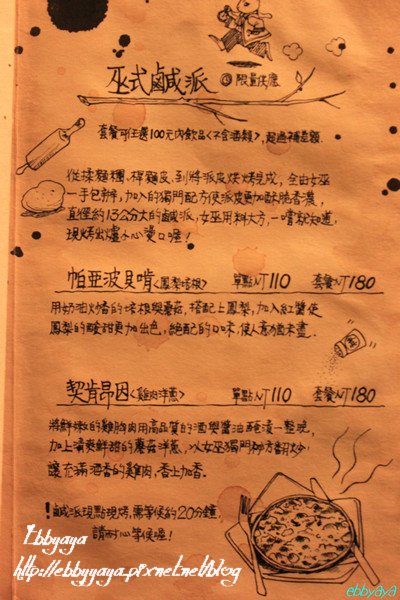 巫式鹹派 限量供應
套餐可任選100元內飲品<不含酒類>,超過補差額.
從揉麵糰、桿麵皮、到將派皮烘烤完成,全由女巫
一手包辦,加入的獨門配方使派皮更加酥脆香濃,
直徑約13公分大的鹹派,女巫用料大方,一嚐就知道,
現烤出爐小心燙口喔!
帕亞波貝啃<鳳梨培根> 單點NT110 套餐NT180
用奶油炒香的培根與蘑菇,搭配上鳳梨,加入紅醬使
鳳梨的酸甜更加出色,絕配的口味使人意猶未盡.
契肯昂因<雞肉洋蔥> 單點NT110 套餐NT180
將鮮嫩的雞胸肉用高品質的酒與醬油醃漬一整晚,
加上清爽鮮甜的蘑菇洋蔥,以女巫獨門秘方翻炒
讓充滿酒香的雞肉,香上加香.
!鹹派現點現烤,需等候約20分鐘,
請耐心等候喔!
Ebbyaya
http://ebbyyaya.pixnet.net/blog
ebbyaya